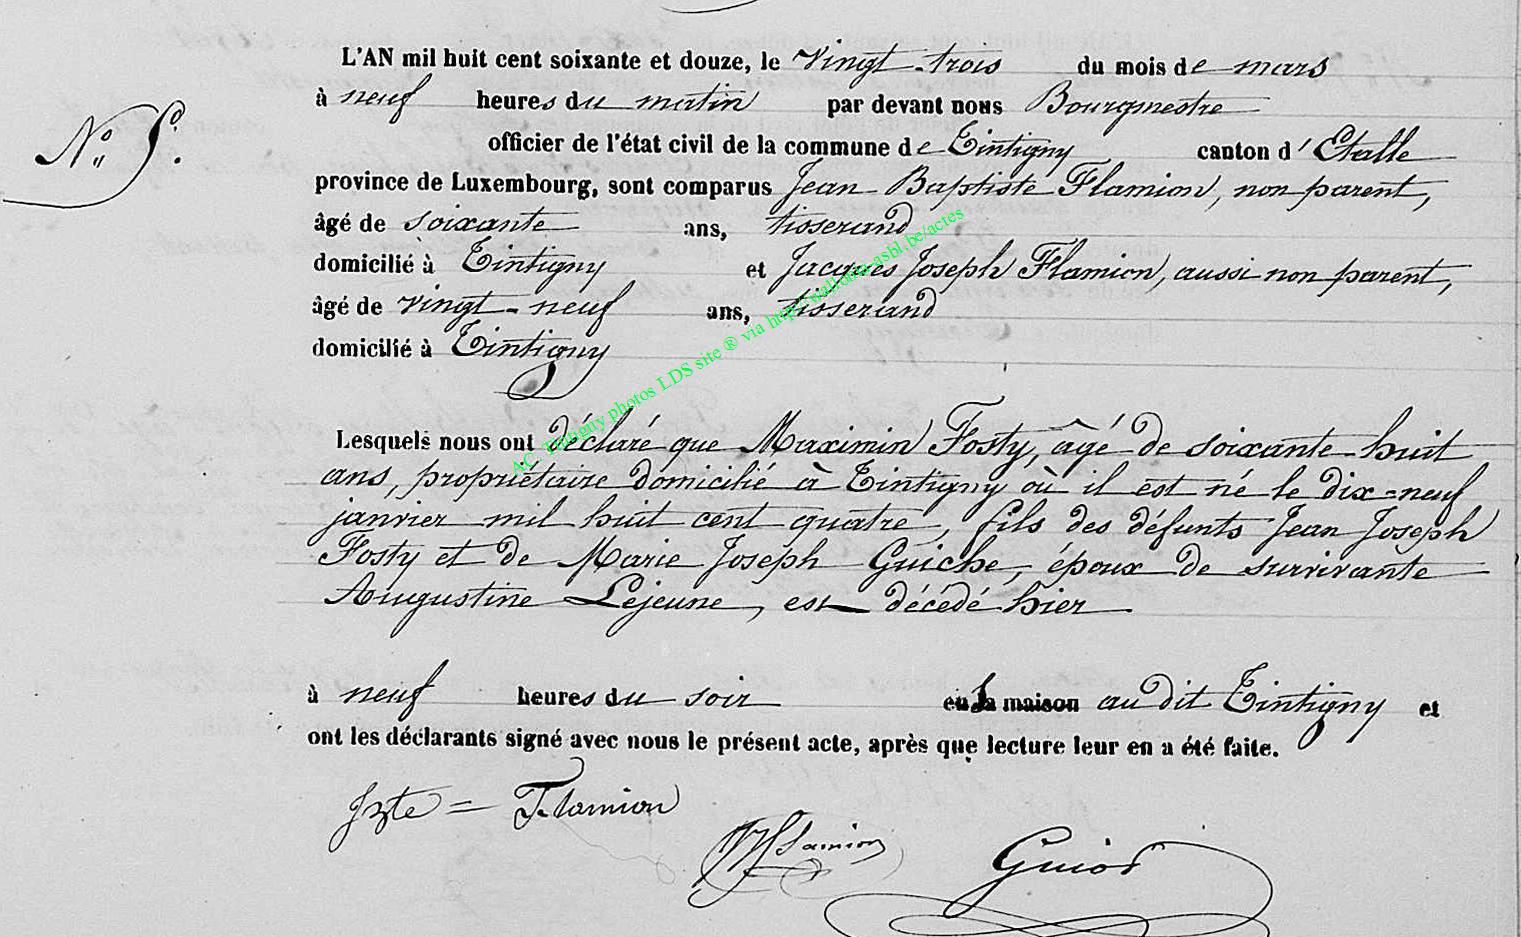 L'AN mil huit cent soixante et douze, le vingt-trois du mois de mars
à neuf heures du matin par devant nous Bourgmestre
N° 5.
officier de l'état civil de la commune de Tintigny canton d'Etalle
province de Luxembourg, sont comparus Jean Baptiste Flamion, non parent,
âgé de soixante ans, tisserand
domicilié à Tintigny et Jacques Joseph Flamion, aussi non parent,
âgé de vingt-neuf ans, tisserand
domicilié à Tintigny
AC. Tintigny photos LDS site ® via http://wallonia-asbl.be/actes
Lesquels nous ont déclaré que Maximin Fosty, âgé de soixante-huit
ans, propriétaire domicilié à Tintigny où il est né le dix-neuf
janvier mil huit cent quatre, fils des défunts Jean Joseph
Fosty et de Marie Joseph Guiche, époux de survivante
Augustine Lejeune, est décédé hier
à neuf heures du soir en sa maison au dit Tintigny et
ont les déclarants signé avec nous le présent acte, après que lecture leur en a été faite.
Flamion
Flamion